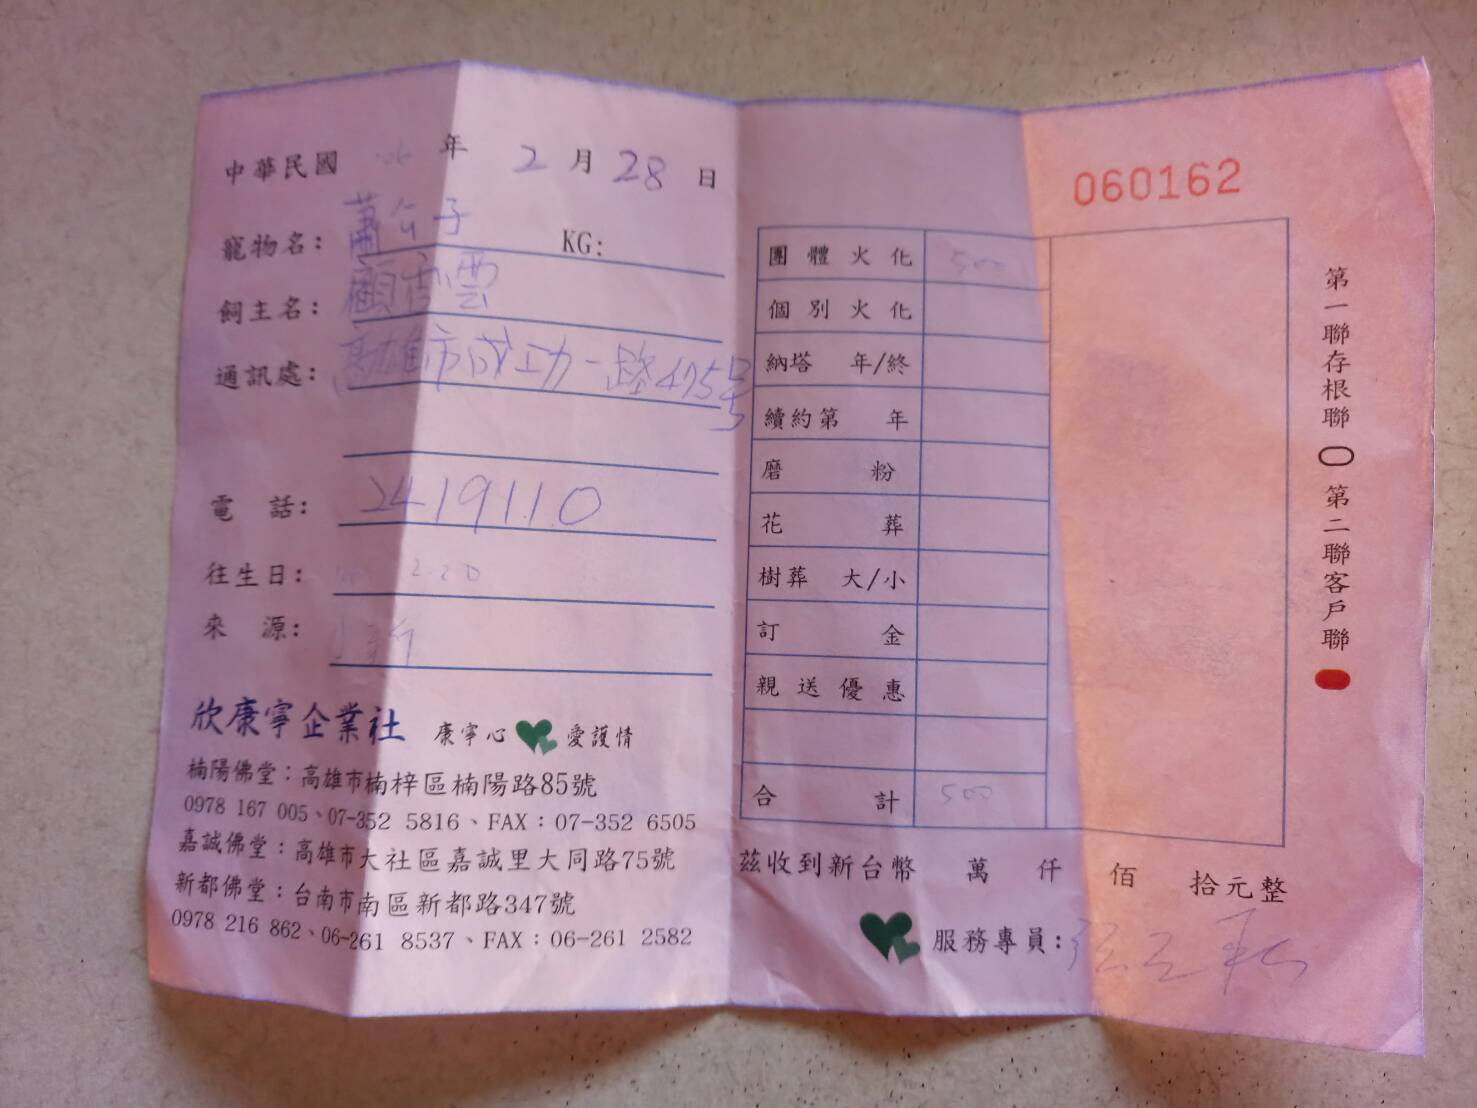 中華民國 年 2 月 28 日
寵物名： 公子 KG:
飼主名： 顧 雲
通訊處： 高雄市成功一路475号
電 話： 2419110
往生日： 2.20
來 源：
欣康寧企業社 康寧心 愛護情
楠陽佛堂：高雄市楠梓區楠陽路85號
0978 167 005、07-352 5816、FAX：07-352 6505
嘉誠佛堂：高雄市大社區嘉誠里大同路75號
新都佛堂：台南市南區新都路347號
0978 216 862、06-261 8537、FAX：06-261 2582
060162
團體火化 500
個別火化
納塔 年/終
續約第 年
磨 粉
花 葬
樹葬 大/小
訂 金
親送優惠
合 計 500
茲收到新台幣 萬 仟 佰 拾元整
服務專員:
第一聯存根聯 第二聯客戶聯